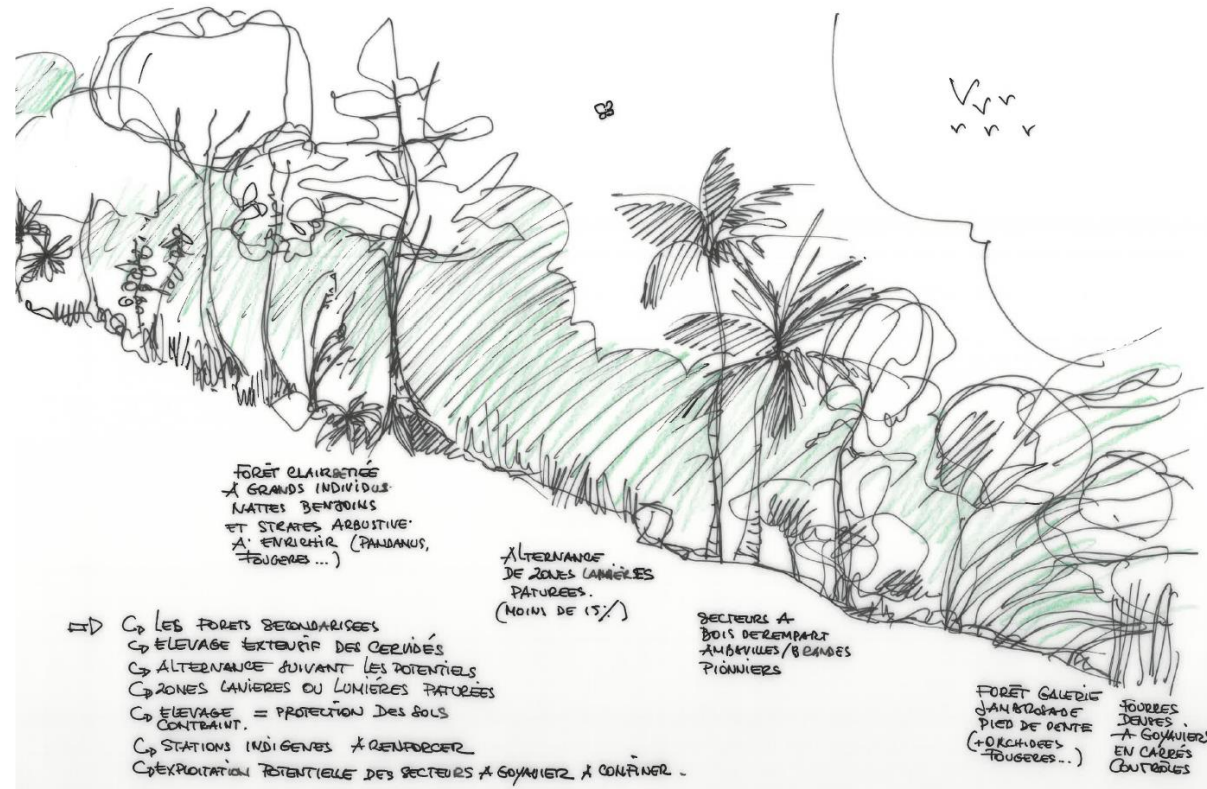 FORÊT CLAIRSEMÉE
A GRANDS INDIVIDUS
NATTES BENJOINS
ET STRATES ARBUSTIVE
A ENRICHIR (PANDANUS,
FOUGERES...)
ALTERNANCE
DE ZONES LANIÈRES
PATUREES.
(MOINS DE 15%)
SECTEURS A
BOIS DE REMPART
AMBAVILLES/BRANDES
PIONNIERS
FORÊT GALERIE
JAMBROSADE
PIED DE PENTE
(+ORCHIDEES
FOUGERES...)
FOURRES
DENSES
A GOYAVIERS
EN CARRÉS
CONTRÔLÉS
LES FORETS SECONDARISEES
ELEVAGE EXTENSIF DES CERVIDÉS
ALTERNANCE SUIVANT LES POTENTIELS
ZONES LANIERES OU LUMIÉRES PATUREES
ELEVAGE = PROTECTION DES SOLS
CONTRAINT.
STATIONS INDIGENES A RENFORCER
EXPLOITATION POTENTIELLE DES SECTEURS A GOYAVIER A CONFINER.